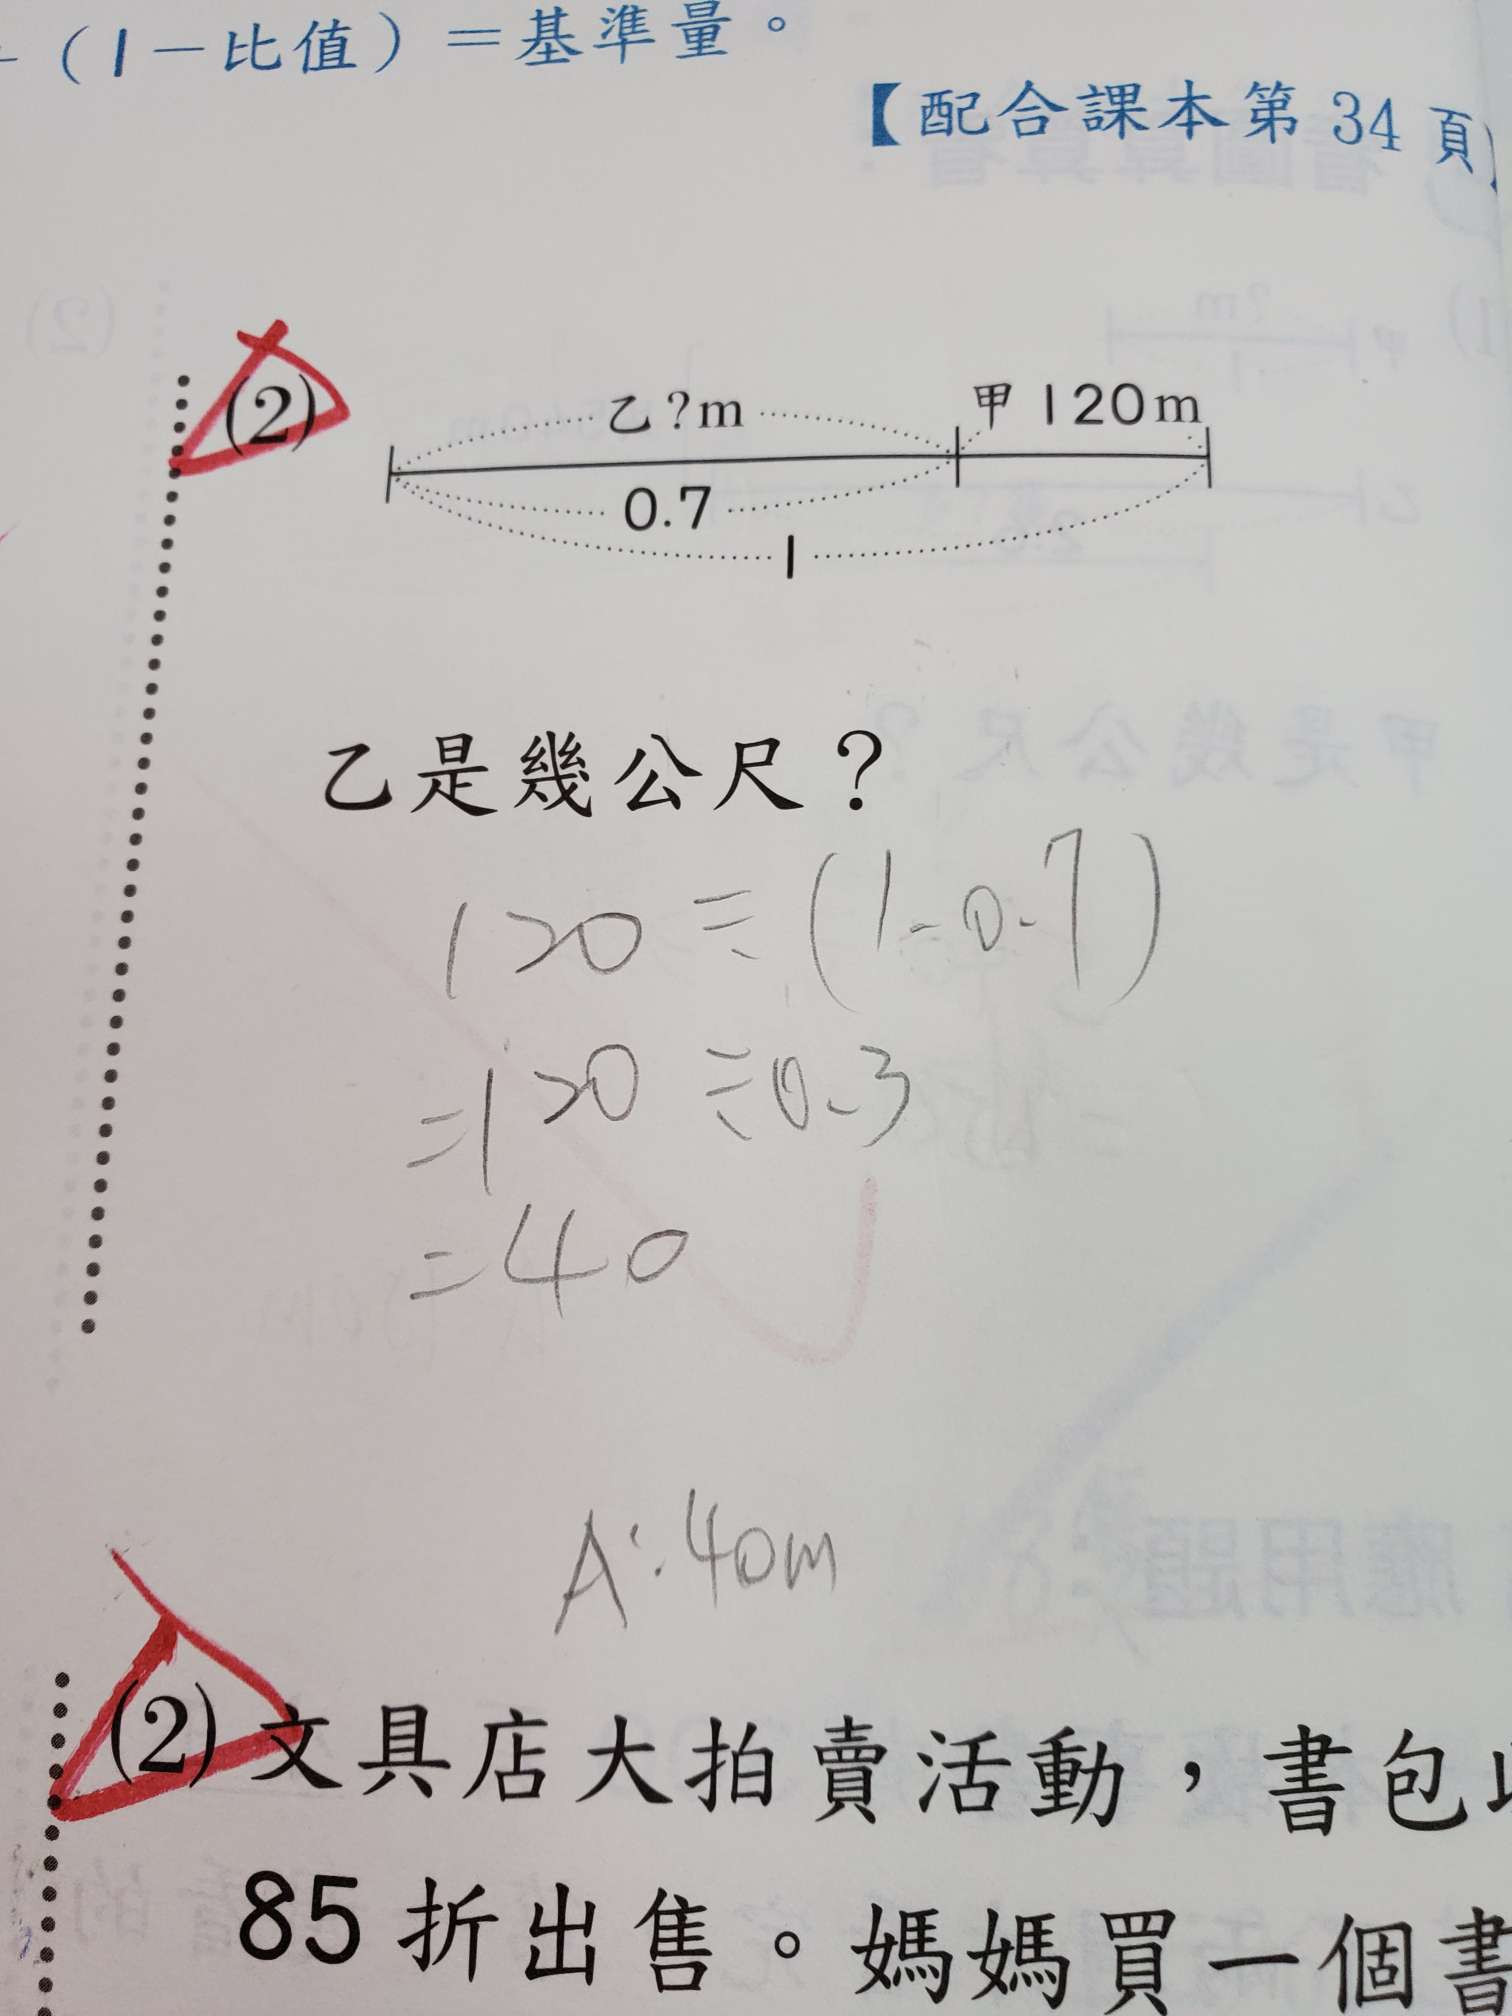 (1－比值)＝基準量。
【配合課本第34頁】
(2)
乙?m 甲120m
0.7
1
乙是幾公尺？
120÷(1-0.7)
=120÷0.3
=40
A:40m
(2)文具店大拍賣活動，書包
85折出售。媽媽買一個書